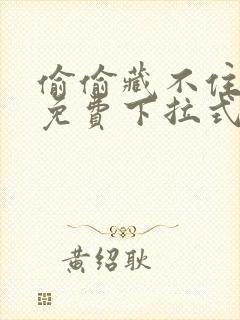 偷偷藏不住
免費下拉式
黃绍耿